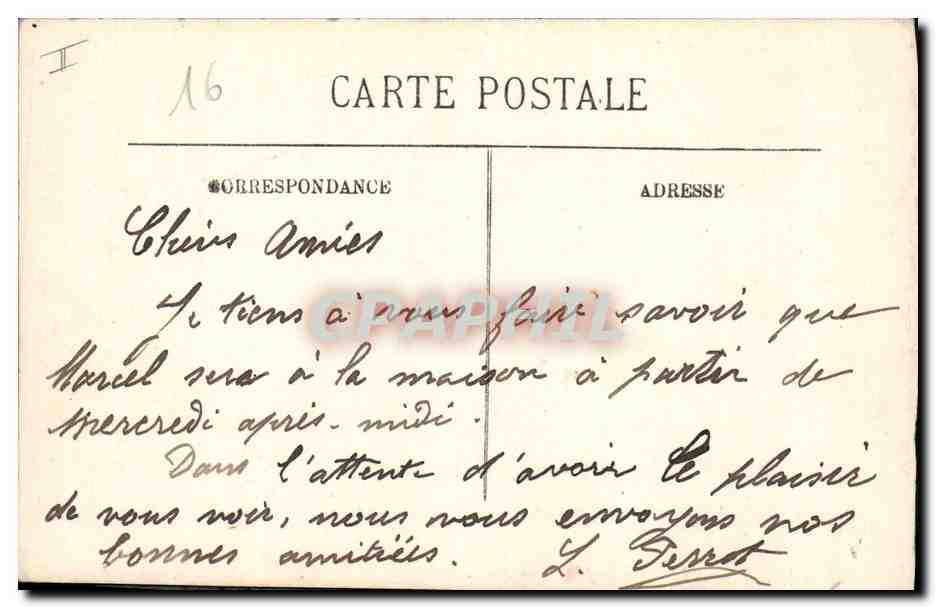 II
16
CARTE POSTALE
CORRESPONDANCE
ADRESSE
Chers Amies
Je tiens à vous faire savoir que
Marcel sera à la maison à partir de
Mercredi après-midi.
Dans l'attente d'avoir le plaisir
de vous voir, nous vous envoyons nos
bonnes amitiées.
L. Perrot
CPAPHIL